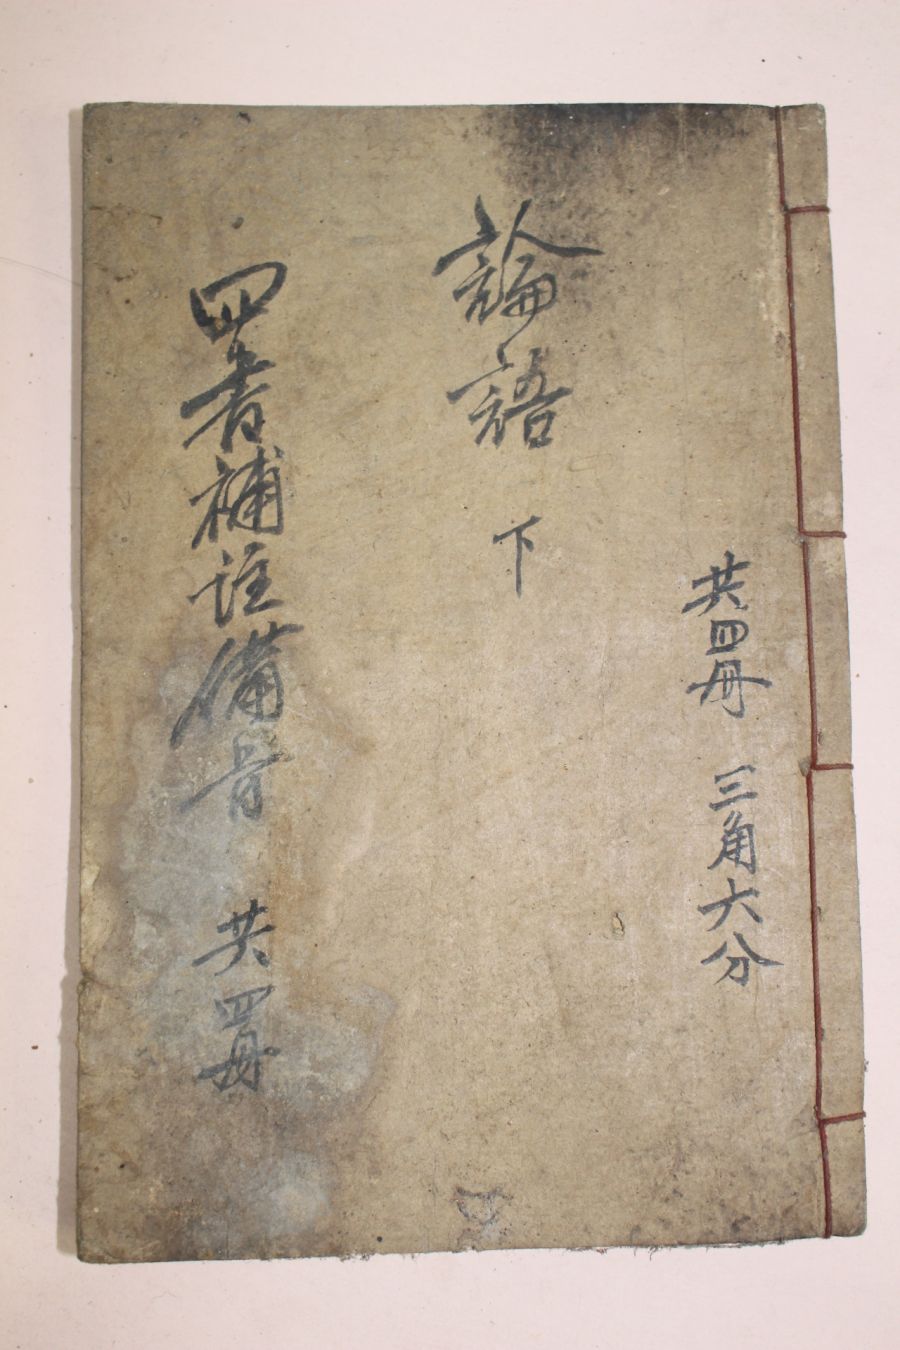 共四冊 三角六分
論語 下
四書補註備旨 共四冊